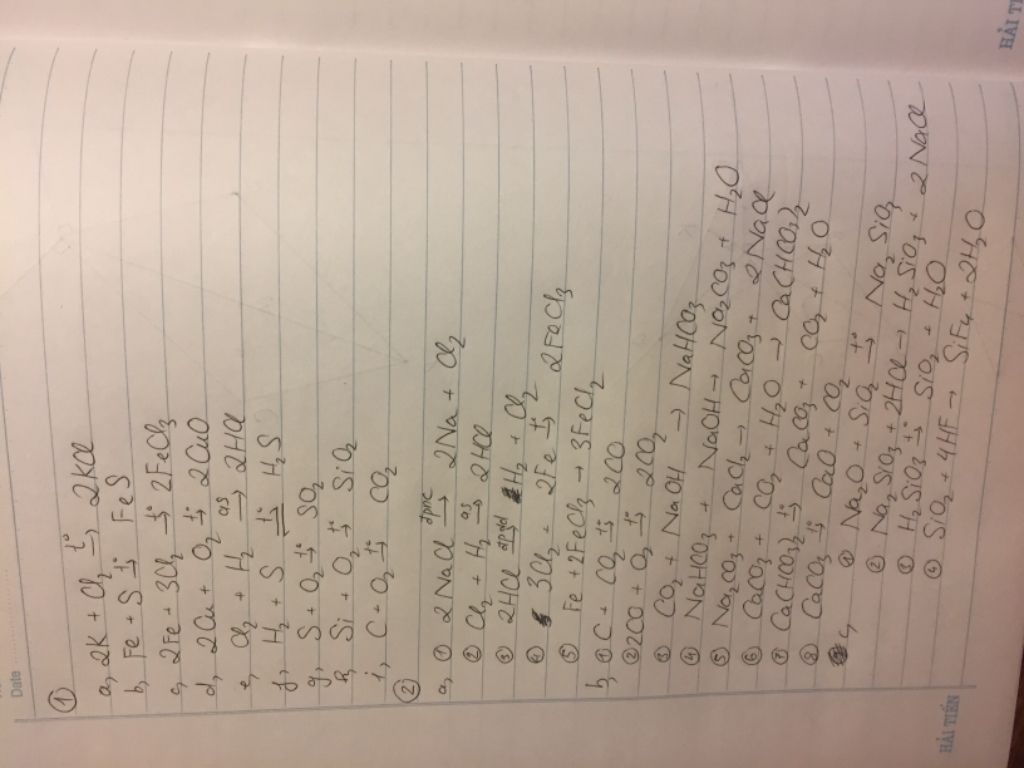 Date
①
a, 2K + Cl₂ →(t°) 2KCl
b, Fe + S →(t°) FeS
c, 2Fe + 3Cl₂ →(t°) 2FeCl₃
d, 2Cu + O₂ →(t°) 2CuO
e, Cl₂ + H₂ →(as) 2HCl
f, H₂ + S ⇌(t°) H₂S
g, S + O₂ →(t°) SO₂
h, Si + O₂ →(t°) SiO₂
i, C + O₂ →(t°) CO₂
②
a, ① 2NaCl →(đpnc) 2Na + Cl₂
② Cl₂ + H₂ →(as) 2HCl
③ 2HCl →(đpdd) H₂ + Cl₂
④ 3Cl₂ + 2Fe →(t°) 2FeCl₃
⑤ Fe + 2FeCl₃ → 3FeCl₂
b, ① C + CO₂ →(t°) 2CO
② 2CO + O₂ →(t°) 2CO₂
③ CO₂ + NaOH → NaHCO₃
④ NaHCO₃ + NaOH → Na₂CO₃ + H₂O
⑤ Na₂CO₃ + CaCl₂ → CaCO₃ + 2NaCl
⑥ CaCO₃ + CO₂ + H₂O → Ca(HCO₃)₂
⑦ Ca(HCO₃)₂ →(t°) CaCO₃ + CO₂ + H₂O
⑧ CaCO₃ →(t°) CaO + CO₂
c, ① Na₂O + SiO₂ →(t°) Na₂SiO₃
② Na₂SiO₃ + 2HCl → H₂SiO₃ + 2NaCl
③ H₂SiO₃ →(t°) SiO₂ + H₂O
④ SiO₂ + 4HF → SiF₄ + 2H₂O
HẢI TIẾN
HẢI TI